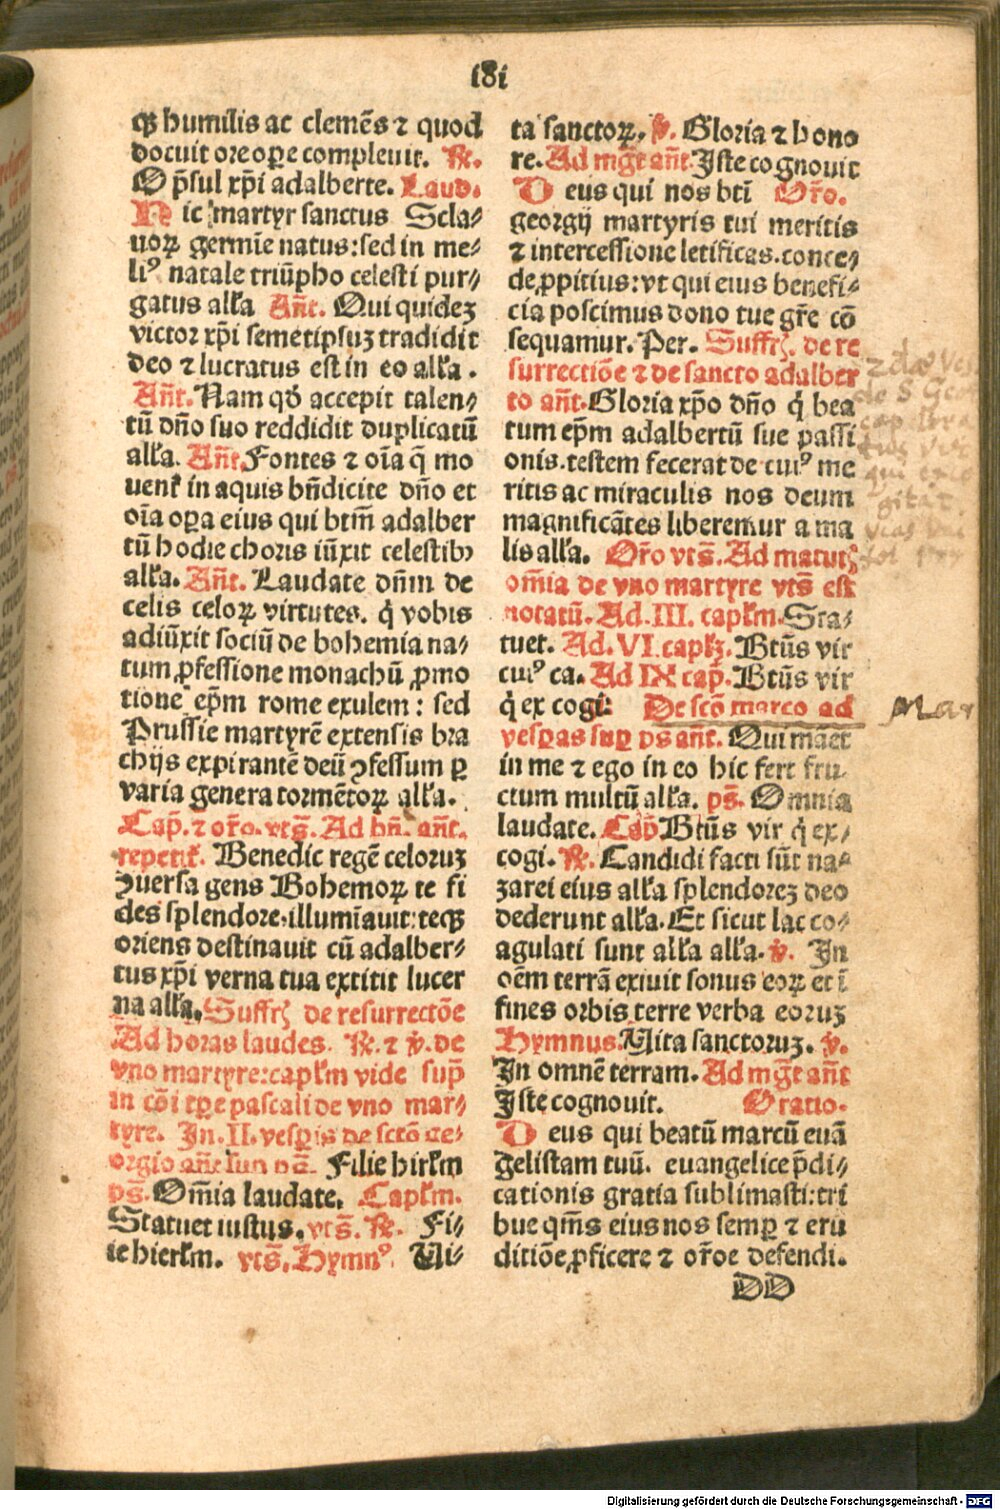 181
qꝫ humilis ac clemēs ⁊ quod
docuit ore oꝑe compleuit. ℟.
O p̄sul xp̄i adalberte. Laud.
Hic martyr sanctus Scla⸗
uoꝝ germīe natus: sed in me⸗
liꝰ natale triūpho celesti pur⸗
gatus alľa Añt. Qui quideꝫ
victor xp̄i semetipsuꝫ tradidit
deo et lucratus est in eo alľa.
Añt. Nam qđ accepit talen⸗
tū dño suo reddidit duplicatū
alľa. Añt. Fontes ⁊ oīa q̄ mo
uent᷑ in aquis bn̄dicite dño et
oīa oꝑa eius qui btm̄ adalber
tū hodie choris iūxit celestibꝫ
alľa. Añt. Laudate dñm de
celis celoꝝ virtutes. q̇ vobis
adiūxit sociū de bohemia na⸗
tum ꝓfessione monachū ꝓmo
tione ep̄m rome exulem: sed
Prussie martyrē extensis bra
chijs expirantē deū ꝯfessum ꝑ
varia genera tormētoꝝ alľa.
Cap̄. ⁊ oŕo. vtꝭ. Ad bñ. añt.
repetit᷑. Benedic regē celoruꝫ
ꝯuersa gens Bohemoꝝ te fi
des splendore. illumīauit: teqꝫ
oriens destinauit cū adalber⸗
tus xp̄i verna tua extitit lucer
na alľa. Suffrꝭ de resurrectōe
Ad horas laudes. ℟. ⁊ ℣. de
vno martyre: capľm vide sup̄
in cōi tꝑe pascali de vno mar⸗
tyre. In. II. vesꝑis de sctō ge⸗
orgio añt sup pš. Filie hirľm
pš. Om̄ia laudate. Capľm.
Statuet iustus. vtš. ℟. Fi⸗
ie hierľm. vtš. Hymnꝰ. Ui⸗
ta sanctoꝝ. ℣. Gloria ⁊ hono
re. Ad mg̃t añt. Iste cognouit
Deus qui nos bti Oŕo.
georgij martyris tui meritis
⁊ intercessione letificas. conce⸗
de ꝓpitius: vt qui eius benefi⸗
cia poscimus dono tue gr̄e cō
sequamur. Per. Suffrꝭ. de re
surrectiōe ⁊ de sancto adalber
to añt. Gloria xp̄o dño q̇ bea
tum ep̄m adalbertū sue passi
onis. testem fecerat de cuiꝰ me
ritis ac miraculis nos deum
magnificātes liberemur a ma
lis alľa. Oŕo vtš. Ad matutꝭ
om̄ia de vno martyre vtš est
notatū. Ad. III. capľm. Sta⸗
tuet. Ad. VI capľꝫ. Btūs vir
cuiꝰ ca. Ad IX cap̄. Btūs vir
q̇ ex cogi: De scō marco ad
vesꝑas suꝑ pš añt. Qui manet
in me ⁊ ego in eo hic fert fru
ctum multū alľa. pš. Omnia
laudate. Cap̄ Btūs vir q̇ ex⸗
cogi. ℟. Candidi facti sūt na⸗
zarei eius alľa splendoreꝫ deo
dederunt alľa. Et sicut lac co⸗
agulati sunt alľa alľa. ℣. In
oēm terrā exiuit sonus eoꝝ et ī
fines orbis terre verba eoruꝫ
Hymnus. Uita sanctoruꝫ. ℣.
In omnē terram. Ad mg̃t añt
Iste cognouit. Oratio.
Deus qui beatū marcū euā
gelistam tuū. euangelice p̄di⸗
cationis gratia sublimasti: tri
bue qm̄s eius nos semꝑ ⁊ eru
ditiōe ꝓficere ⁊ oŕoe defendi.
DD
Mar
Digitalisierung gefördert durch die Deutsche Forschungsgemeinschaft - DFG